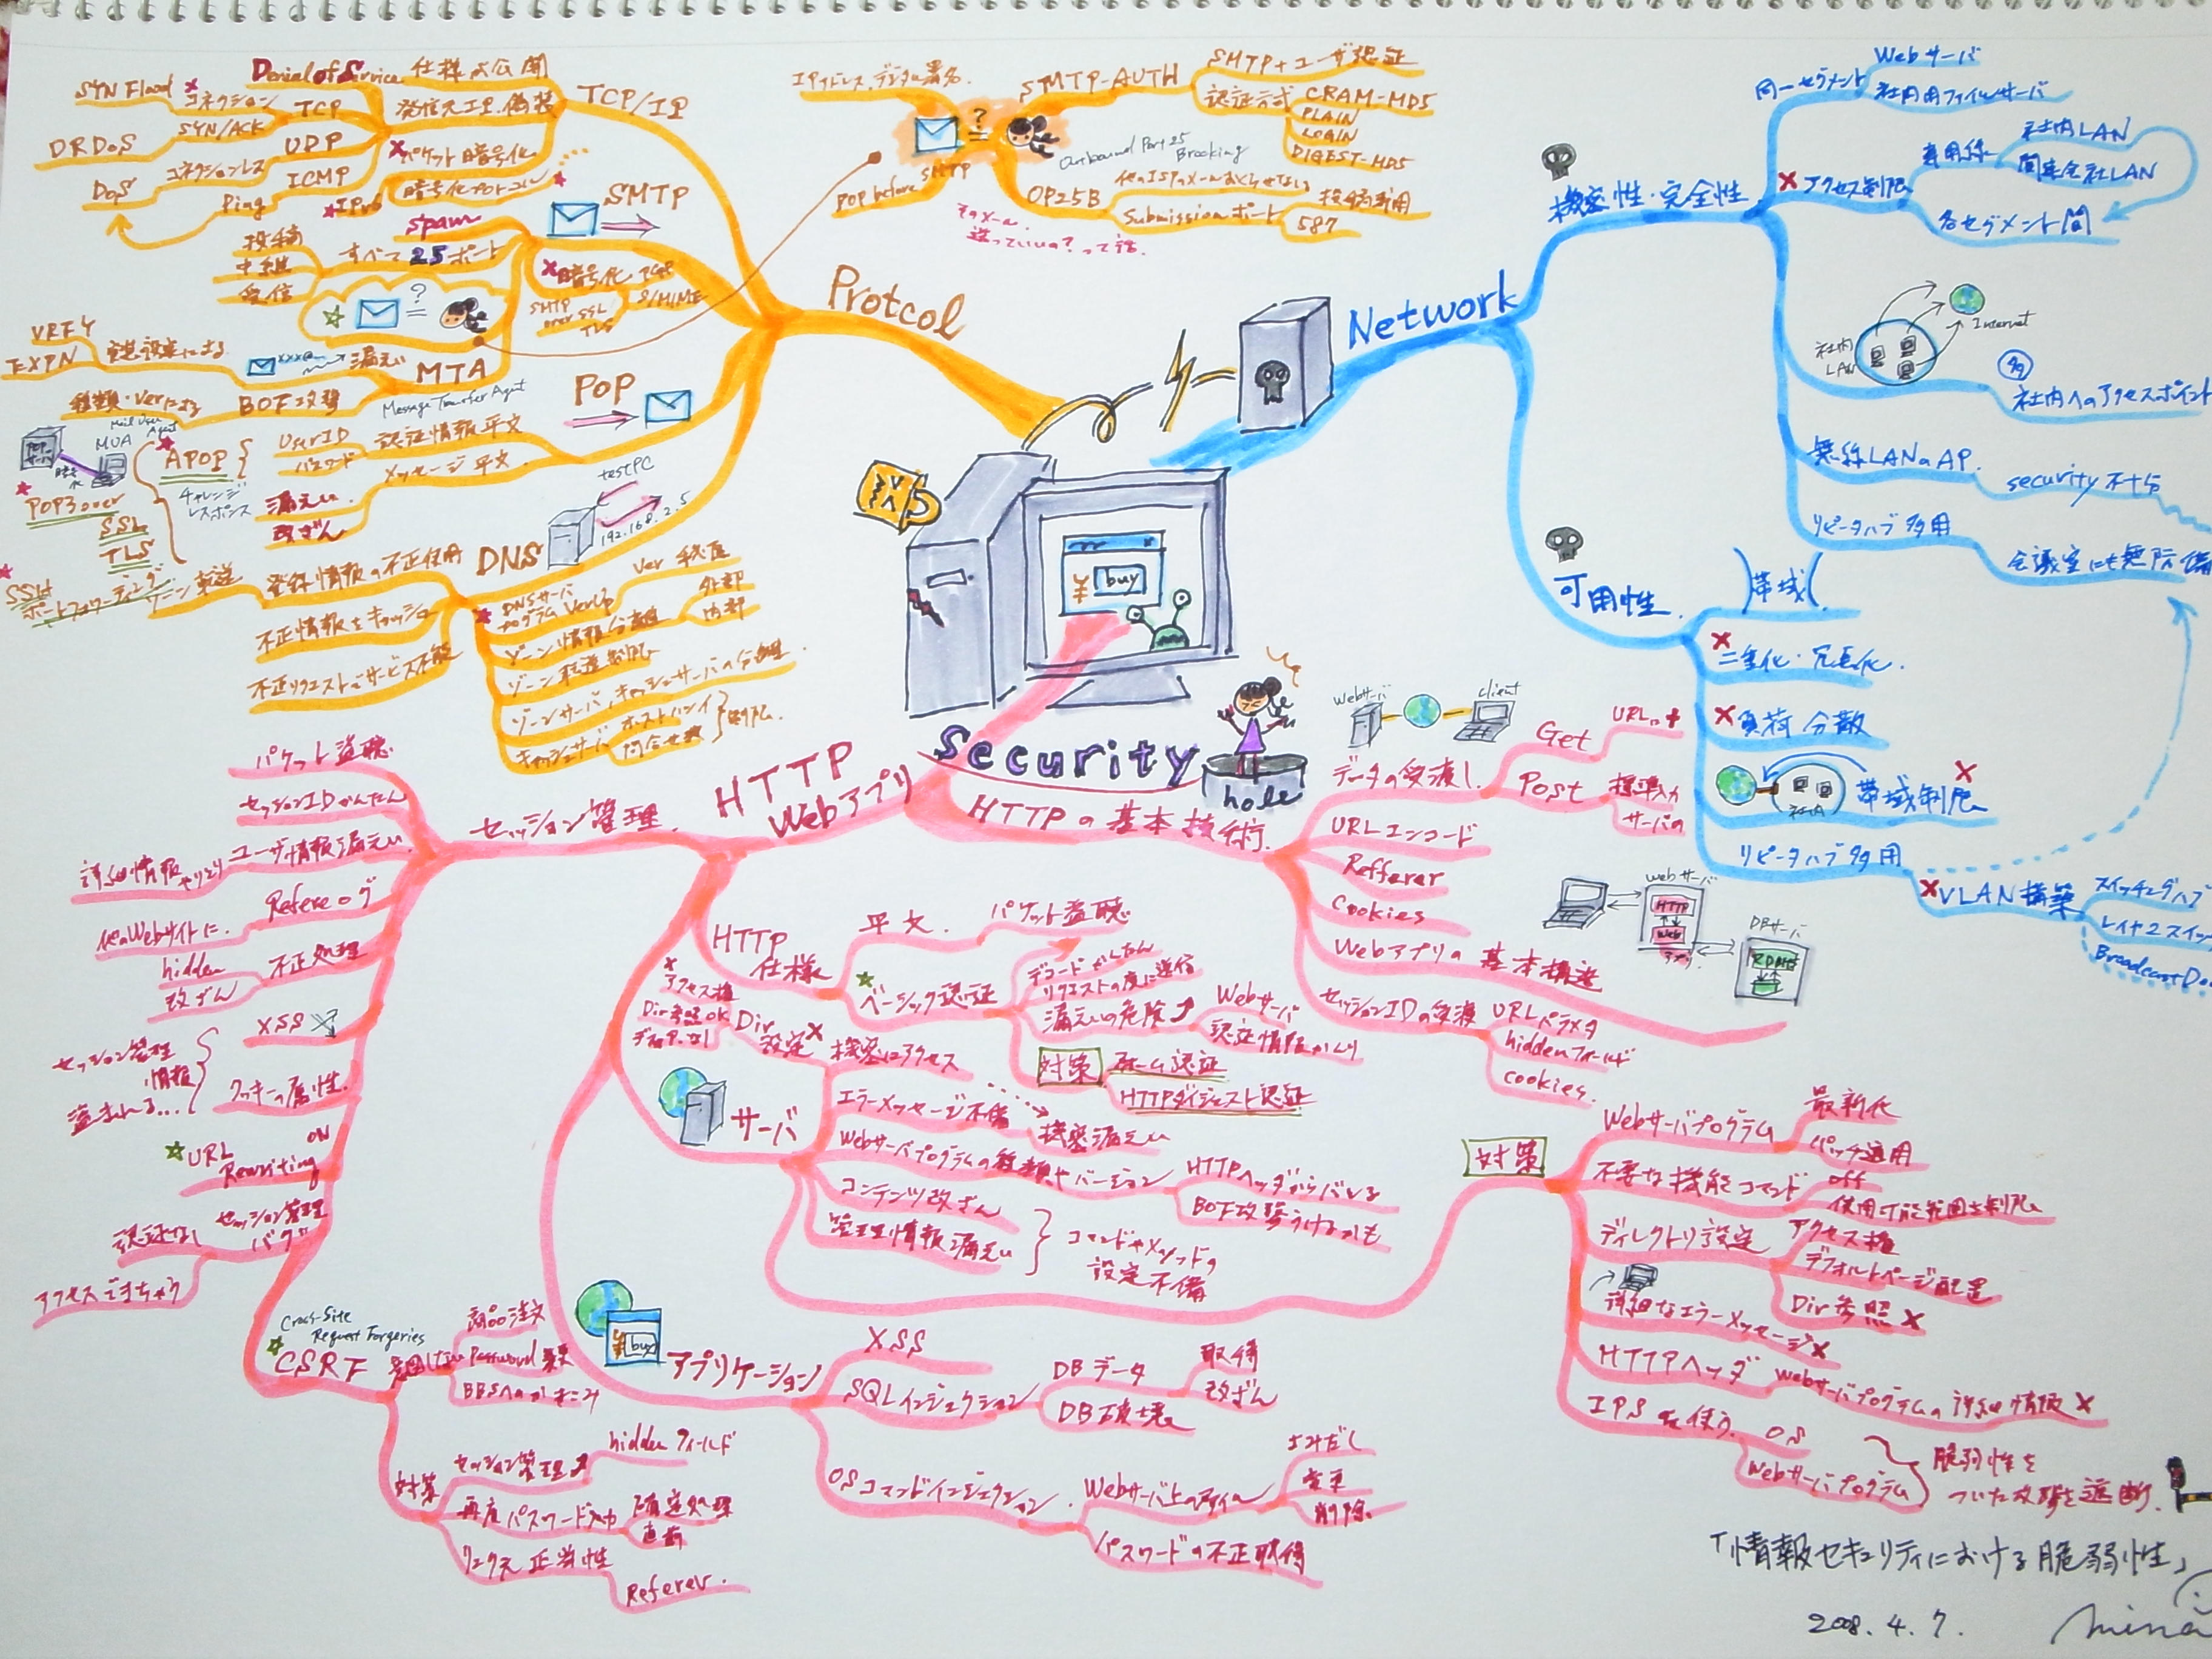 Security
hole
buy
Protcol
TCP/IP
仕様が公開
Denial of Service
発信元IP.偽装
TCP
コネクション
SYN Flood
SYN/ACK
DRDoS
UDP
コネクションレス
DoS
ICMP
Ping
パケット暗号化
暗号化プロトコル
IPv6
SMTP
spam
すべて25ポート
投稿
中継
受信
暗号化
PGP
S/MIME
SMTP
over SSL
TLS
?
=
MTA
Message Transfer Agent
漏えい
VRFY
EXPN
BOF攻撃
種類・Verによる
IPアドレス、デジタル署名.
?
=
SMTP
POP before
SMTP-AUTH
SMTP+ユーザ認証
認証方式
CRAM-MD5
PLAIN
LOGIN
DIGEST-MD5
Outbound Port 25
Brocking
OP25B
Submissionポート
587
そのメール
送っていいの?って話.
POP
認証情報平文
UserID
パスワード
メッセージ平文
漏えい.
改ざん
APOP
チャレンジ
レスポンス
Mail User
Agent
MUA
POP
サーバ
POP3 over
SSL
TLS
SSH
ポートフォワーディング
DNS
testPC
192.168.2.5
登録情報の不正使用
ゾーン転送
不正情報をキャッシュ
不正リクエストでサービス不能
DNSサーバ
プログラムVerUp
Ver 秘匿
ゾーン情報分離
外部
内部
ゾーン転送制限
ゾーンサーバ,キャッシュサーバの分離.
キャッシュサーバ
問合せ数
制限.
Network
機密性・完全性
同一セグメント
Webサーバ
社内用ファイルサーバ
アクセス制限
専用線
社内LAN
関連会社LAN
各セグメント間
社内
LAN
Internet
多
社内へのアクセスポイント
無線LANのAP.
security不十分
リピータハブ多用
会議室にも無防備
可用性.
帯域
二重化・冗長化.
負荷分散
社内
帯域制限
リピータハブ多用
VLAN構築
スイッチングハブ
レイヤ2スイッ
Broadcast Do
HTTP
Webアプリ
HTTPの基本技術.
データの受渡し.
Webサーバ
client
Get
URLに+
Post
標準入力
サーバの
URLエンコード
Refferer
Cookies
Webアプリの基本構造
webサーバ
HTTP
Web
アプリ
DBサーバ
RDBMS
セッションIDの受渡
URLパラメタ
hiddenフィールド
cookies.
セッション管理.
パケット盗聴
セッションIDかんたん
ユーザ情報漏えい.
詳細情報やりとり
Refererログ
他のWebサイトに.
不正処理
hidden
改ざん
XSS
クッキーの属性.
セッション管理
情報
盗まれる....
URL
Rewriting
ON
セッション管理
バグ
認証なし
アクセスできちゃう
Cross-Site
Request Forgeries
CSRF
意図しない
商品注文
Password変更
BBSへのかきこみ
対策
セッション管理
hiddenフィールド
再度パスワード入力
確定処理
直前
リンク元正当性
Referer.
HTTP
仕様
平文.
パケット盗聴
ベーシック認証
デコードかんたん
リクエストの度に送信
漏えいの危険
Webサーバ
認証情報がんり
対策
フォーム認証
HTTPダイジェスト認証
サーバ
Dir
設定
アクセス権
Dir参照OK
機密にアクセス
エラーメッセージ不備
機密漏えい
Webサーバプログラムの種類やバージョン
HTTPヘッダからバレる
BOF攻撃うけるかも
コンテンツ改ざん
管理情報漏えい
コマンドやメソッドの
設定不備
対策
Webサーバプログラム
最新化
パッチ適用
不要な機能コマンド
off
使用可能範囲を制限
ディレクトリ設定
アクセス権
デフォルトページ配置
Dir参照
詳細なエラーメッセージ
HTTPヘッダ
webサーバプログラムの詳細情報
IPSを使う.
OS
Webサーバプログラム
脆弱性を
ついた攻撃を遮断.
buy
アプリケーション
XSS
SQLインジェクション
DBデータ
取得
改ざん
DB破壊
OSコマンドインジェクション.
Webサーバ上のファイル
よみだし
変更
削除.
パスワードの不正取得
「情報セキュリティにおける脆弱性」
2008.4.7.
mina